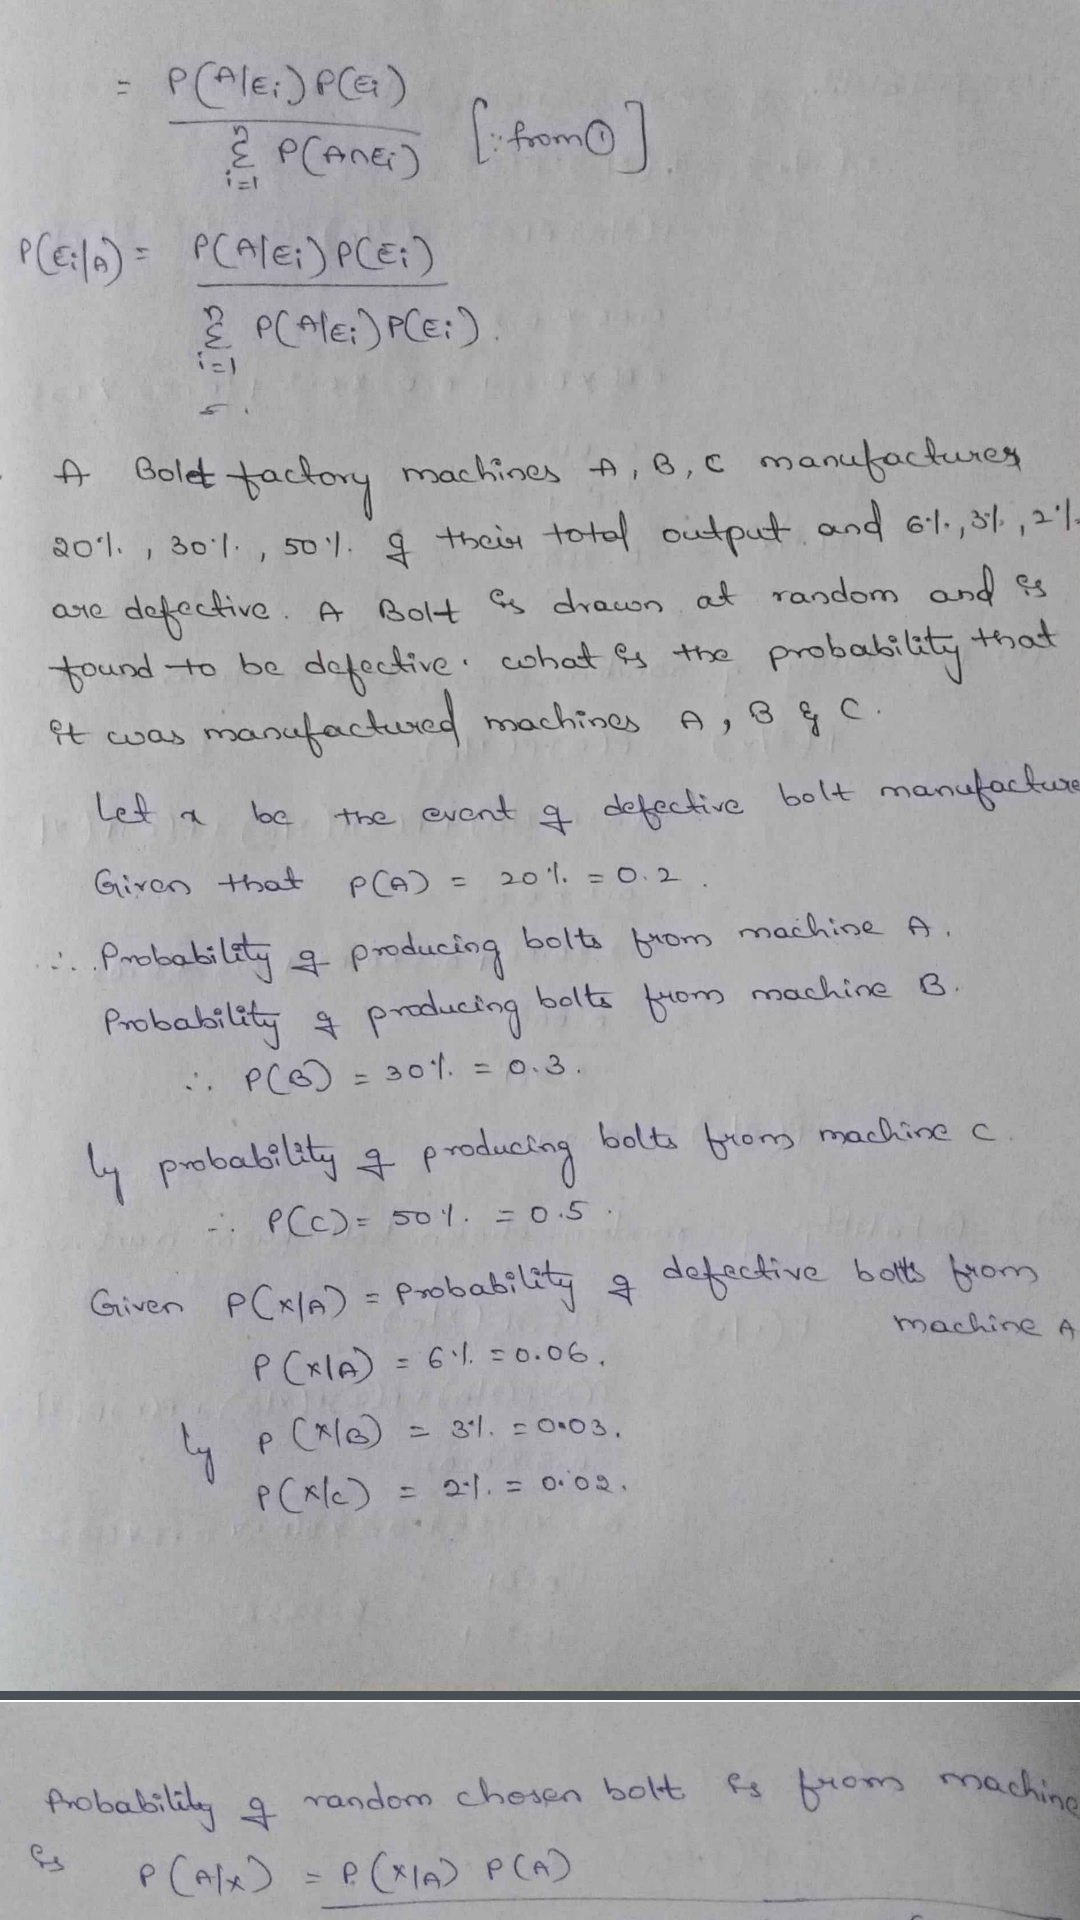 = P(A|Ei) P(Ei)
n Σ i=1 P(A∩Ei) [∵ from ①]
P(Ei|A) = P(A|Ei) P(Ei)
n Σ i=1 P(A|Ei) P(Ei).
A Bolt factory machines A, B, C manufactures
20%, 30%, 50% of their total output and 6%, 3%, 2%
are defective. A Bolt is drawn at random and is
found to be defective. what is the probability that
it was manufactured machines A, B & C.
Let x be the event of defective bolt manufacture
Given that P(A) = 20% = 0.2.
∴ Probability of producing bolts from machine A.
Probability of producing bolts from machine B.
∴ P(B) = 30% = 0.3.
ly probability of producing bolts from machine C.
∴ P(C) = 50% = 0.5.
Given P(X|A) = Probability of defective bolts from
machine A
P(X|A) = 6% = 0.06.
ly P(X|B) = 3% = 0.03.
P(X|C) = 2% = 0.02.
Probability of random chosen bolt is from machine
is P(A|X) = P(X|A) P(A)